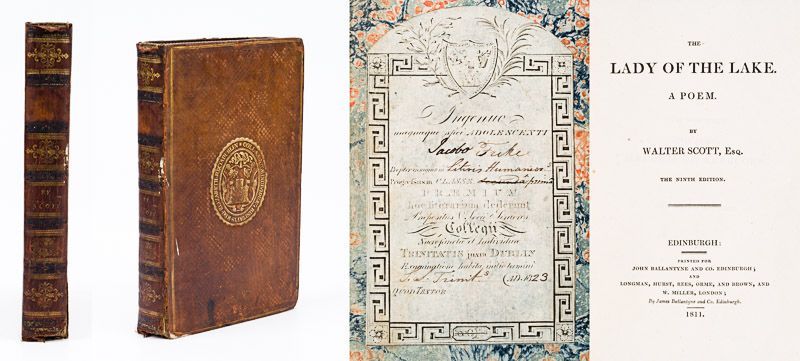 BY
SCOTT
Ingenuo
magnæque spei ADOLESCENTI
Jacobo
propter insignem in Literis Humanior.s
Progressum in CLASSE secundâ primâ
PRÆMIUM
hoc literarium dederunt
Præpositus & Socii Seniores
Collegii
Sacrosanctæ et Individuæ
TRINITATIS juxta DUBLIN
Examinatione habita
Trinit.s
QUOD TESTOR
THE
LADY OF THE LAKE.
A POEM.
BY
WALTER SCOTT, Esq.
THE NINTH EDITION.
EDINBURGH:
PRINTED FOR
JOHN BALLANTYNE AND CO. EDINBURGH;
AND
LONGMAN, HURST, REES, ORME, AND BROWN, AND
W. MILLER, LONDON;
By James Ballantyne and Co. Edinburgh.
1811.